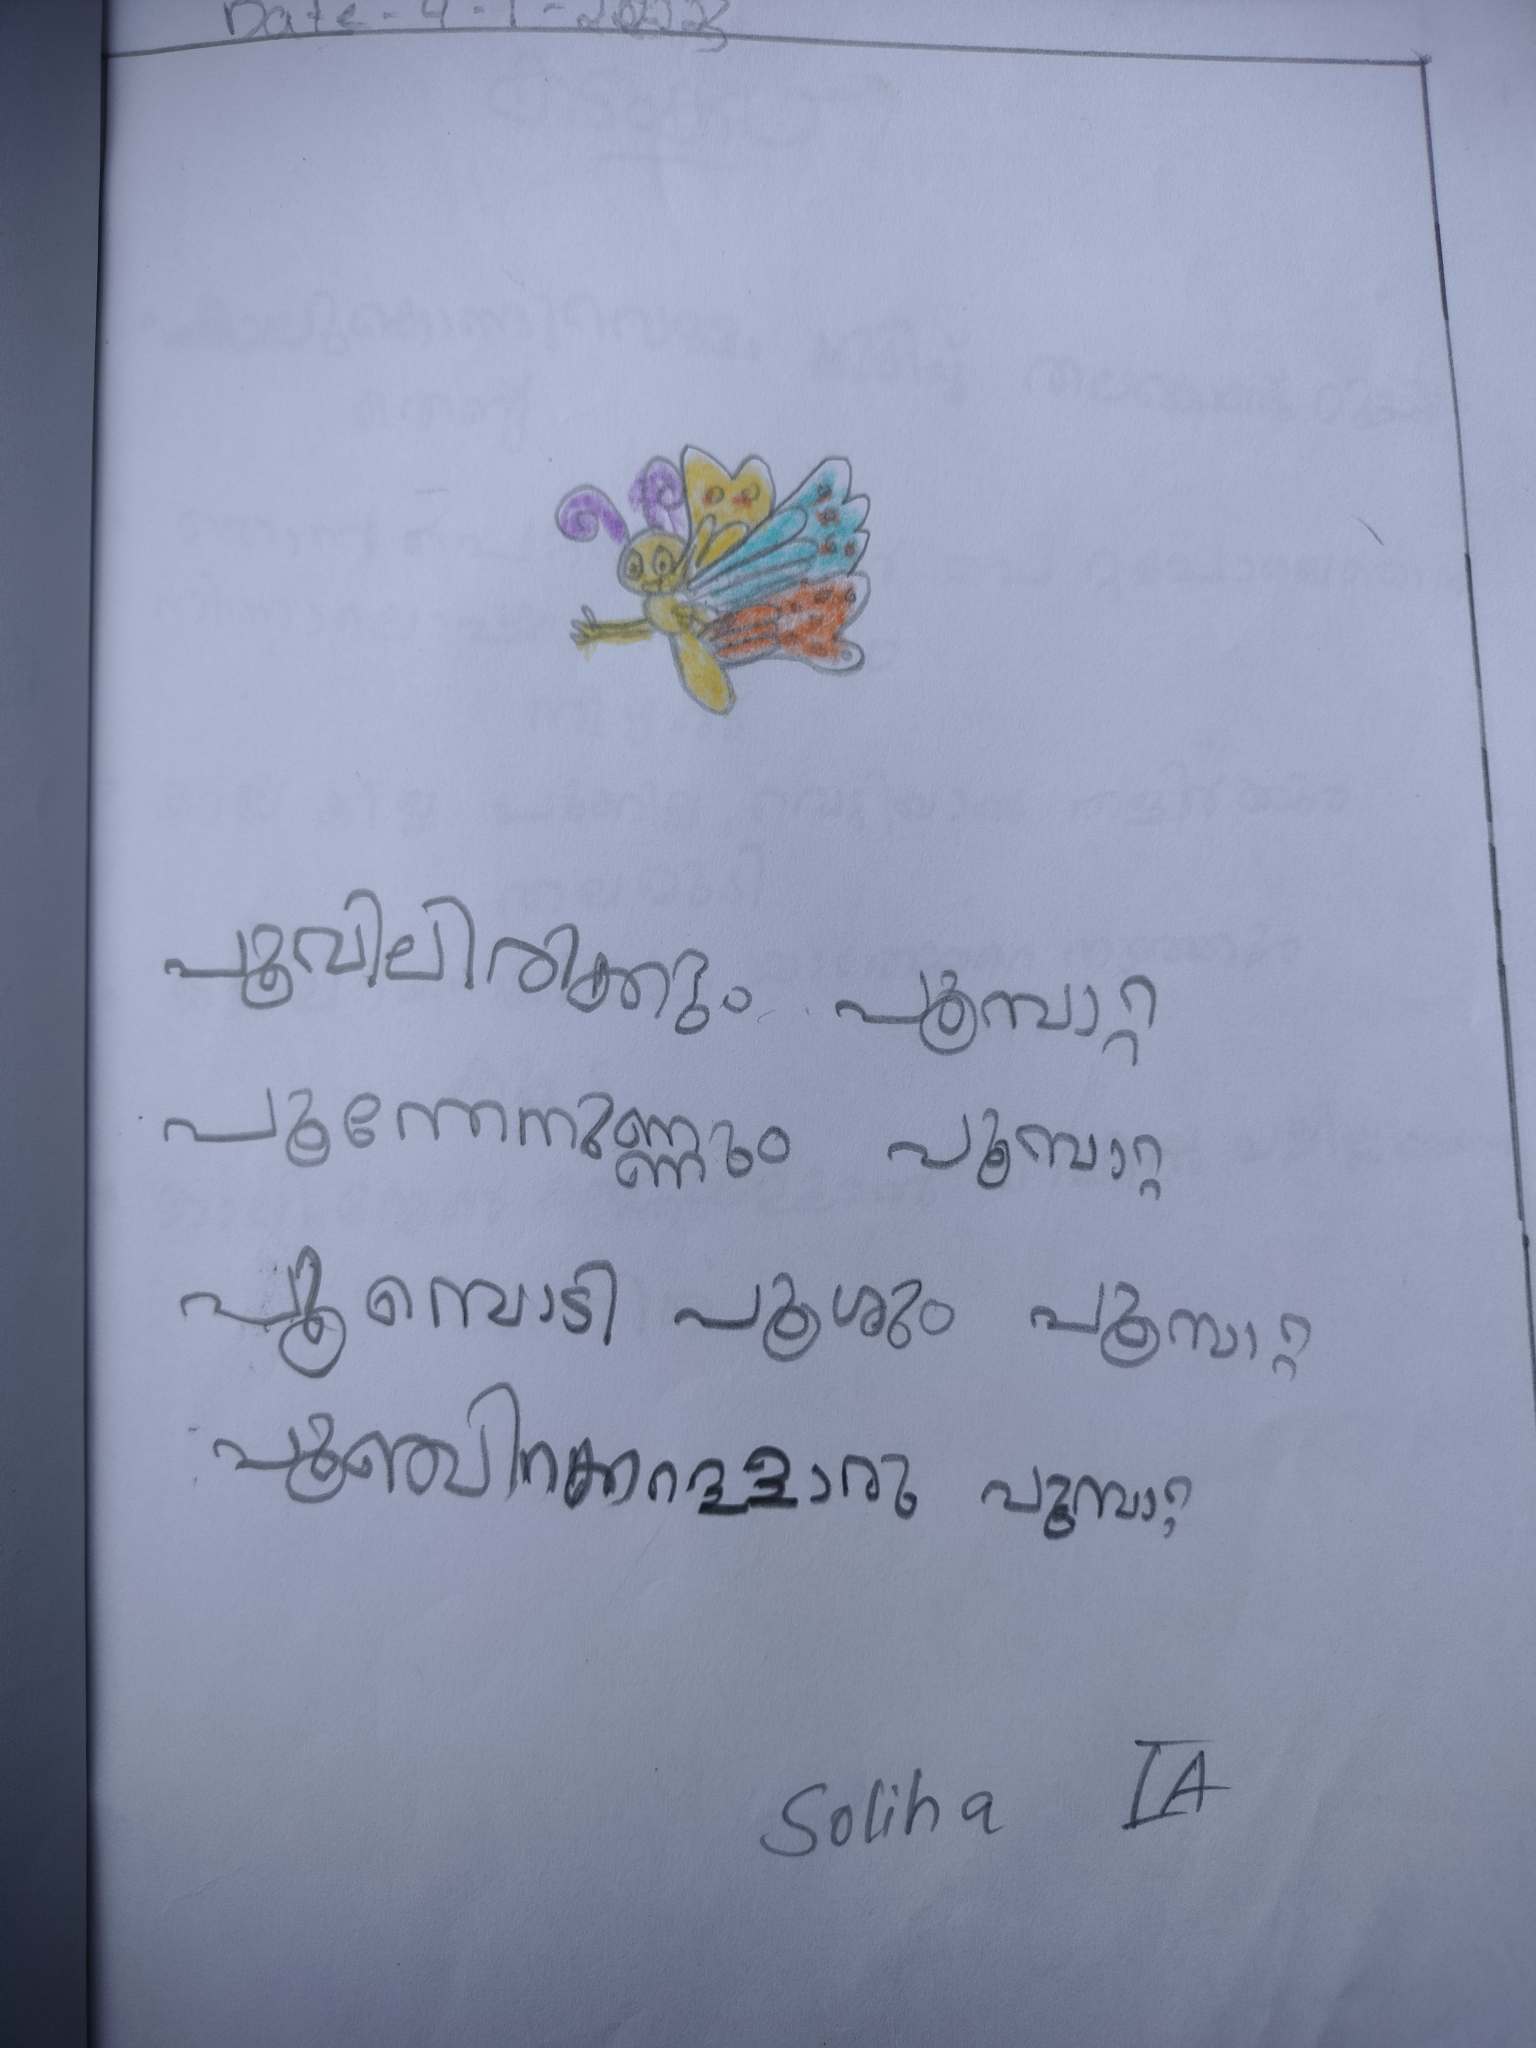 Date - 4 - 1 - 2023
പൂവിലിരിക്കും പൂമ്പാറ്റ
പൂന്തേനുണ്ണും പൂമ്പാറ്റ
പൂമ്പൊടി പൂശും പൂമ്പാറ്റ
പൂമ്പാറ്റ
Soliha IA